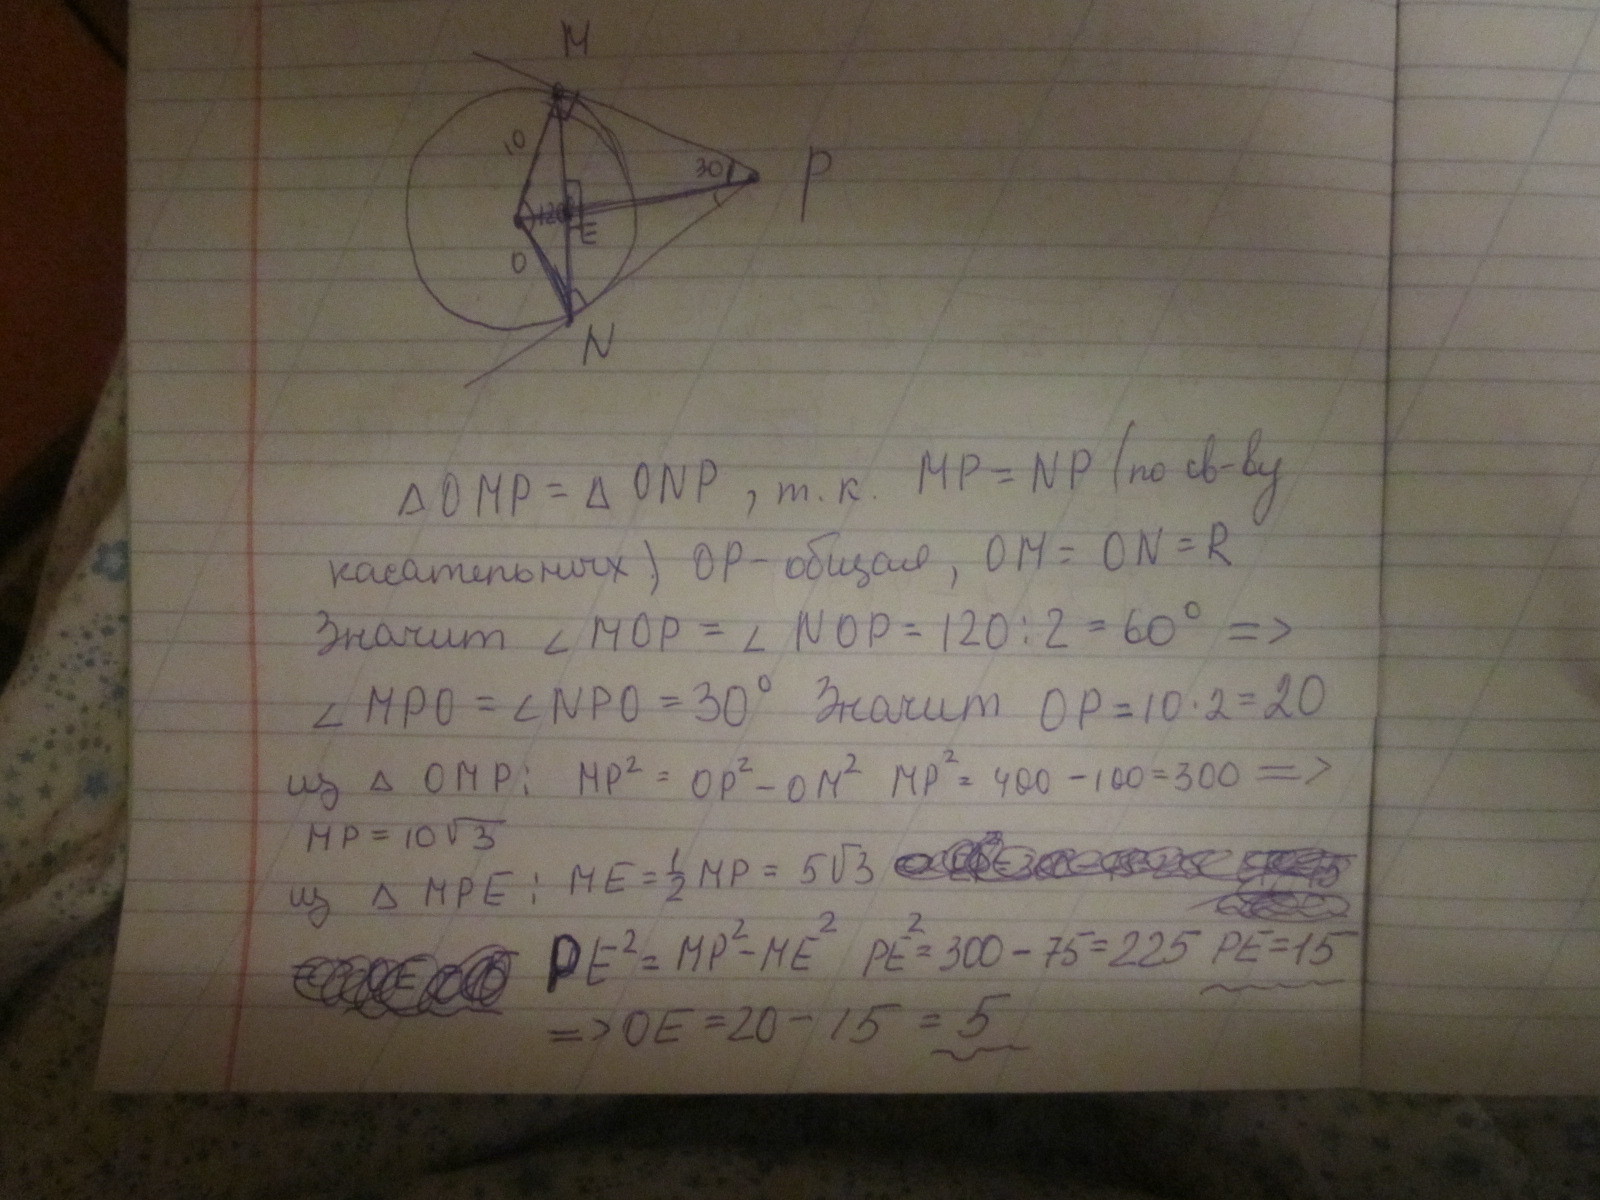 M
10
30
P
120°
E
O
N
△OMP = △ONP, т.к. MP = NP (по св-ву
касательных) OP - общая, OM = ON = R
Значит ∠MOP = ∠NOP = 120:2 = 60° =>
∠MPO = ∠NPO = 30° Значит OP = 10·2 = 20
из △OMP: MP² = OP² - OM² MP² = 400 - 100 = 300 =>
MP = 10√3
из △MPE: ME = ½MP = 5√3
PE² = MP² - ME² PE² = 300 - 75 = 225 PE = 15
=> OE = 20 - 15 = 5